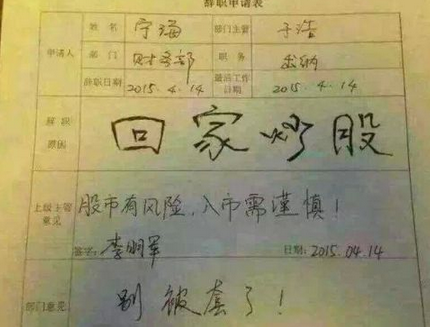 辞职申请表
姓名 宁海 部门主管 于浩
申请人 部门 财务部 职务 出纳
辞职日期 2015.4.14 最后工作日期 2015.4.14
辞职原因 回家炒股
上级主管意见 股市有风险，入市需谨慎！
签字：李明军 日期：2015.04.14
部门意见 别被套了！